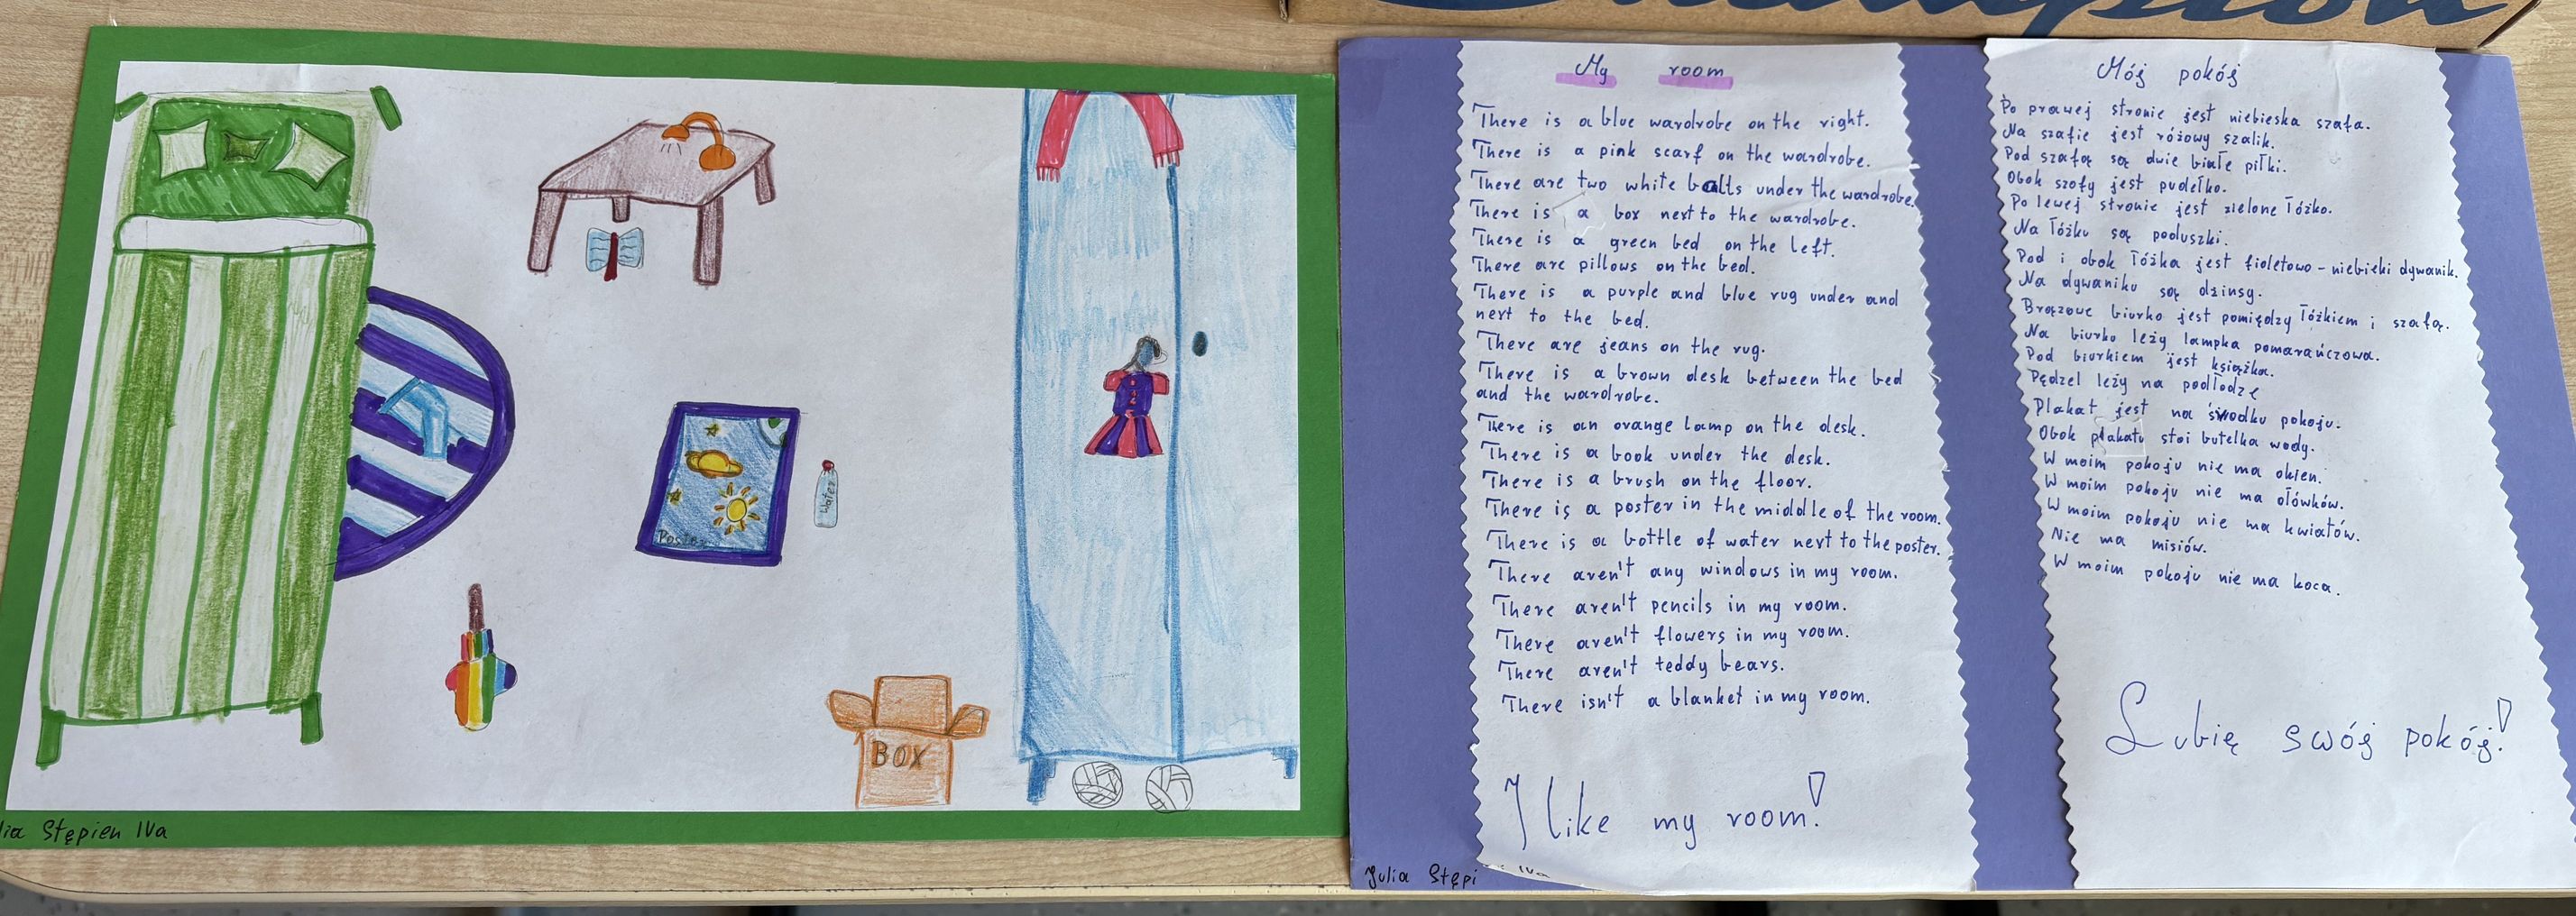 Champion
Poster
Water
BOX
lia Stępien IVa
My room
There is a blue wardrobe on the right.
There is a pink scarf on the wardrobe.
There are two white balls under the wardrobe.
There is a box next to the wardrobe.
There is a green bed on the left.
There are pillows on the bed.
There is a purple and blue rug under and
next to the bed.
There are jeans on the rug.
There is a brown desk between the bed
and the wardrobe.
There is an orange lamp on the desk.
There is a book under the desk.
There is a brush on the floor.
There is a poster in the middle of the room.
There is a bottle of water next to the poster.
There aren't any windows in my room.
There aren't pencils in my room.
There aren't flowers in my room.
There aren't teddy bears.
There isn't a blanket in my room.
I like my room!
Julia Stępi IVa
Mój pokój
Po prawej stronie jest niebieska szafa.
Na szafie jest różowy szalik.
Pod szafą są dwie białe piłki.
Obok szafy jest pudełko.
Po lewej stronie jest zielone łóżko.
Na łóżku są poduszki.
Pod i obok łóżka jest fioletowo-niebieki dywanik.
Na dywaniku są dżinsy.
Brązowe biurko jest pomiędzy łóżkiem i szafą.
Na biurko leży lampka pomarańczowa.
Pod biurkiem jest książka.
Pędzel leży na podłodze
Plakat jest na środku pokoju.
Obok plakatu stoi butelka wody.
W moim pokoju nie ma okien.
W moim pokoju nie ma ołówków.
W moim pokoju nie ma kwiatów.
Nie ma misiów.
W moim pokoju nie ma koca.
Lubię swój pokój!